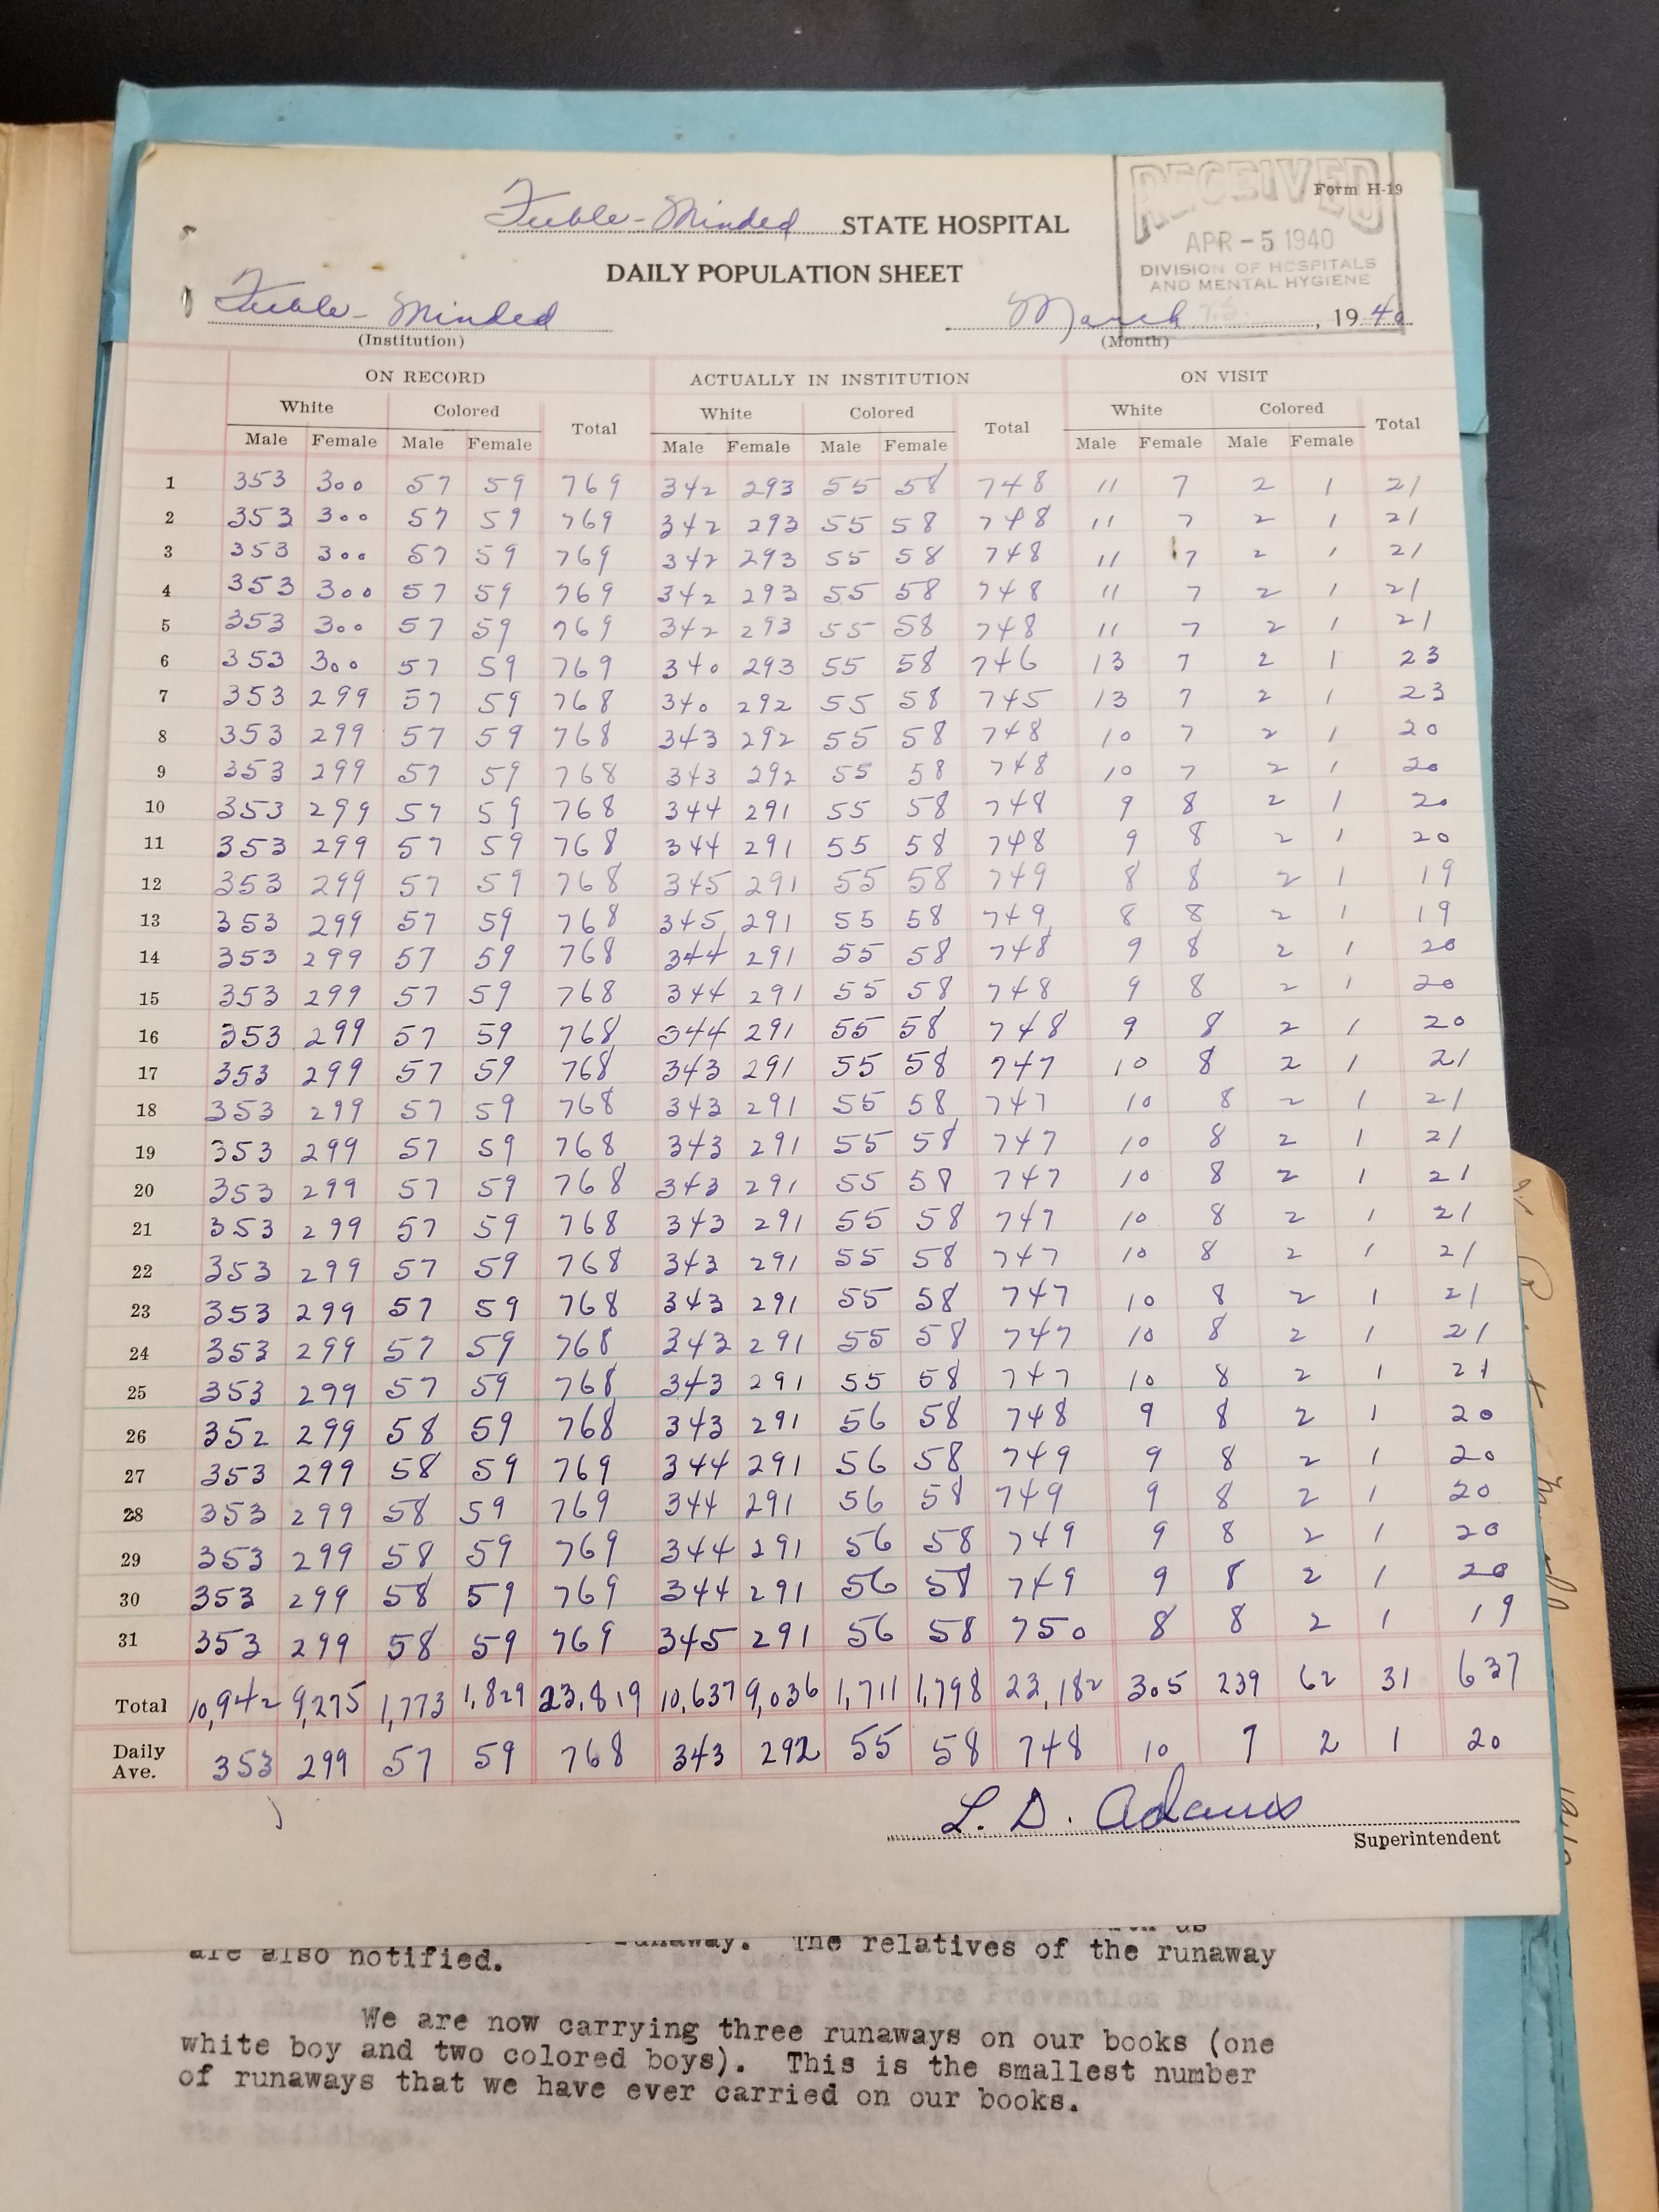 RECEIVED
Form H-19
Feeble-Minded STATE HOSPITAL
APR - 5 1940
DAILY POPULATION SHEET
DIVISION OF HOSPITALS
AND MENTAL HYGIENE
Feeble-Minded March , 1940
(Institution) (Month)
ON RECORD ACTUALLY IN INSTITUTION ON VISIT
White Colored Total White Colored Total White Colored Total
Male Female Male Female Male Female Male Female Male Female Male Female
1 353 300 57 59 769 342 293 55 58 748 11 7 2 1 21
2 353 300 57 59 769 342 293 55 58 748 11 7 2 1 21
3 353 300 57 59 769 342 293 55 58 748 11 7 2 1 21
4 353 300 57 59 769 342 293 55 58 748 11 7 2 1 21
5 353 300 57 59 769 342 293 55 58 748 11 7 2 1 21
6 353 300 57 59 769 340 293 55 58 746 13 7 2 1 23
7 353 299 57 59 768 340 292 55 58 745 13 7 2 1 23
8 353 299 57 59 768 343 292 55 58 748 10 7 2 1 20
9 353 299 57 59 768 343 292 55 58 748 10 7 2 1 20
10 353 299 57 59 768 344 291 55 58 748 9 8 2 1 20
11 353 299 57 59 768 344 291 55 58 748 9 8 2 1 20
12 353 299 57 59 768 345 291 55 58 749 8 8 2 1 19
13 353 299 57 59 768 345 291 55 58 749 8 8 2 1 19
14 353 299 57 59 768 344 291 55 58 748 9 8 2 1 20
15 353 299 57 59 768 344 291 55 58 748 9 8 2 1 20
16 353 299 57 59 768 344 291 55 58 748 9 8 2 1 20
17 353 299 57 59 768 343 291 55 58 747 10 8 2 1 21
18 353 299 57 59 768 343 291 55 58 747 10 8 2 1 21
19 353 299 57 59 768 343 291 55 58 747 10 8 2 1 21
20 353 299 57 59 768 343 291 55 58 747 10 8 2 1 21
21 353 299 57 59 768 343 291 55 58 747 10 8 2 1 21
22 353 299 57 59 768 343 291 55 58 747 10 8 2 1 21
23 353 299 57 59 768 343 291 55 58 747 10 8 2 1 21
24 353 299 57 59 768 343 291 55 58 747 10 8 2 1 21
25 353 299 57 59 768 343 291 55 58 747 10 8 2 1 21
26 352 299 58 59 768 343 291 56 58 748 9 8 2 1 20
27 353 299 58 59 769 344 291 56 58 749 9 8 2 1 20
28 353 299 58 59 769 344 291 56 58 749 9 8 2 1 20
29 353 299 58 59 769 344 291 56 58 749 9 8 2 1 20
30 353 299 58 59 769 344 291 56 58 749 9 8 2 1 20
31 353 299 58 59 769 345 291 56 58 750 8 8 2 1 19
Total 10,942 9,275 1,773 1,829 23,819 10,637 9,036 1,711 1,798 23,182 305 239 62 31 637
Daily Ave. 353 299 57 59 768 343 292 55 58 748 10 7 2 1 20
L. D. Adams
Superintendent
runaway. The relatives of the runaway
are also notified.
We are now carrying three runaways on our books (one
white boy and two colored boys). This is the smallest number
of runaways that we have ever carried on our books.
the buildings.